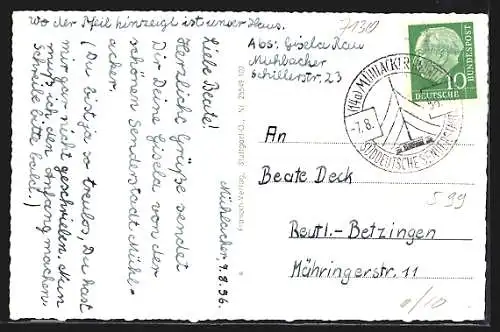 wo der Pfeil hinzeigt ist unser Haus.
Mühlacker, 9.8.56.
Liebe Beate!
Herzliche Grüße sendet
Dir Deine Gisela von der
schönen Senderstadt Mühl-
acker.
(Du bist ja so treulos, Du hast
mir gar nicht geschrieben. Nun
muß ich den Anfang machen.
Schreibe bitte bald.)
71310
Abs: Gisela Rau
Mühlacker
Schillerstr. 23
(14a) MÜHLACKER
-7.8.
SÜDDEUTSCHE
DEUTSCHE BUNDESPOST
10
An
Beate Deck
Reutl.-Betzingen
Mähringerstr. 11
S 99
0/10